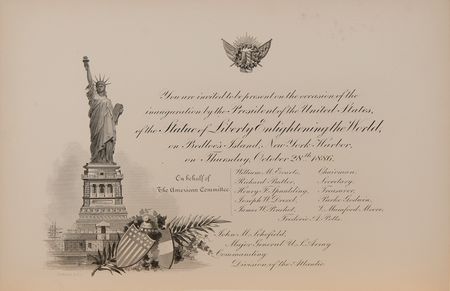 You are invited to be present on the occasion of the
inauguration by the President of the United States,
of the Statue of Liberty Enlightening the World,
on Bedloe's Island, New York Harbor,
on Thursday, October 28th 1886.
On behalf of
The American Committee
William M. Evarts, Chairman,
Richard Butler, Secretary,
Henry F. Spaulding, Treasurer,
Joseph W. Drexel, Parke Godwin,
James W. Pinchot, V. Mumford Moore,
Frederic A. Potts.
John M. Schofield,
Major General U.S. Army
Commanding
Division of the Atlantic.